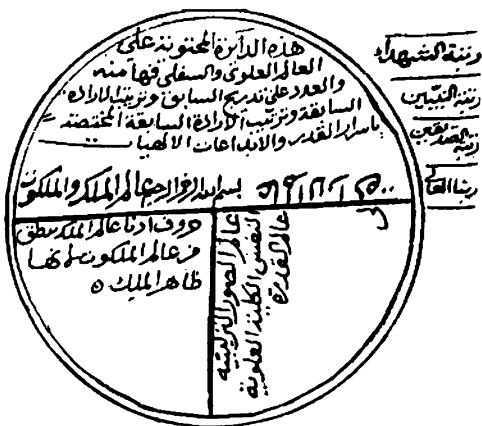 هذه الدائرة المحتوية على
العالم العلوى والسفلى فهامنه
والعدد على تدريج السابق وترتيب الارادة
السابقة وترتيب الارادة السابقة المختصة
باسرار القدر والابداعات الالهيا
بسم الله الرحمن الرحيم عالم الملك والملكوت
دوف ادنا عالم الملك ينطق
من عالم الملكوت لانها
ظاهر الملك
عالم الصور الترتيبية
النفس الكلية العلوية
عالم القدرة
رتبة الشهداء
رتبة النبيين
رتبة الصديقين